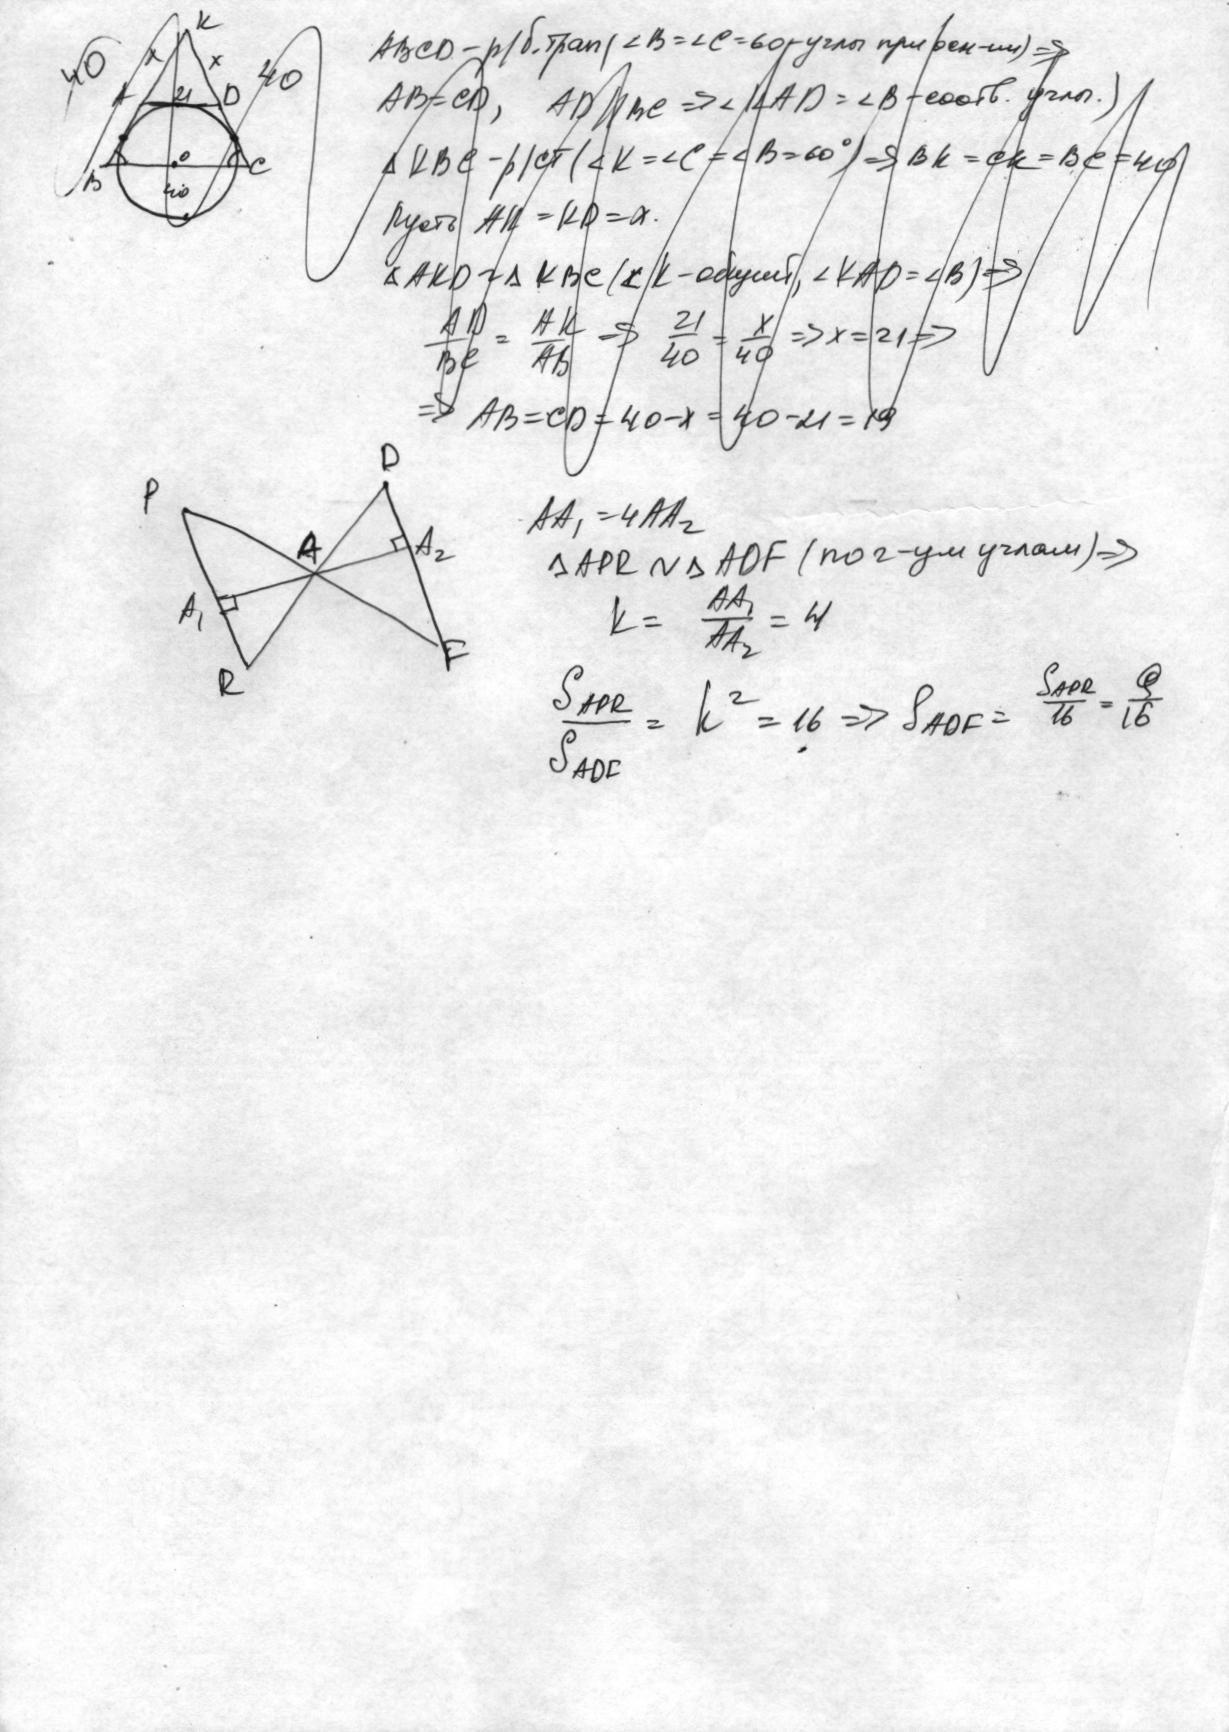 K
40
x
x
40
A
21
D
B
O
C
40
ABCD – р/б. трап (∠B=∠C=60 - углы при осн-ии) =>
AB=CD, AD||BC => ∠KAD = ∠B - соотв. углы.)
△KBC – р/ст (∠K=∠C=∠B=60°) => BK=CK=BC=40
Пусть AK = KD = x.
△AKD ~ △KBC (∠K - общий, ∠KAD=∠B) =>
AD/BC = AK/AB => 21/40 = x/40 => x=21 =>
=> AB=CD=40-x=40-21=19
P
D
A
A₂
A₁
R
F
AA₁ = 4AA₂
△APR ~ △ADF (по 2-ум углам) =>
k = AA₁/AA₂ = 4
S_APR/S_ADF = k² = 16 => S_ADF = S_APR/16 = Q/16